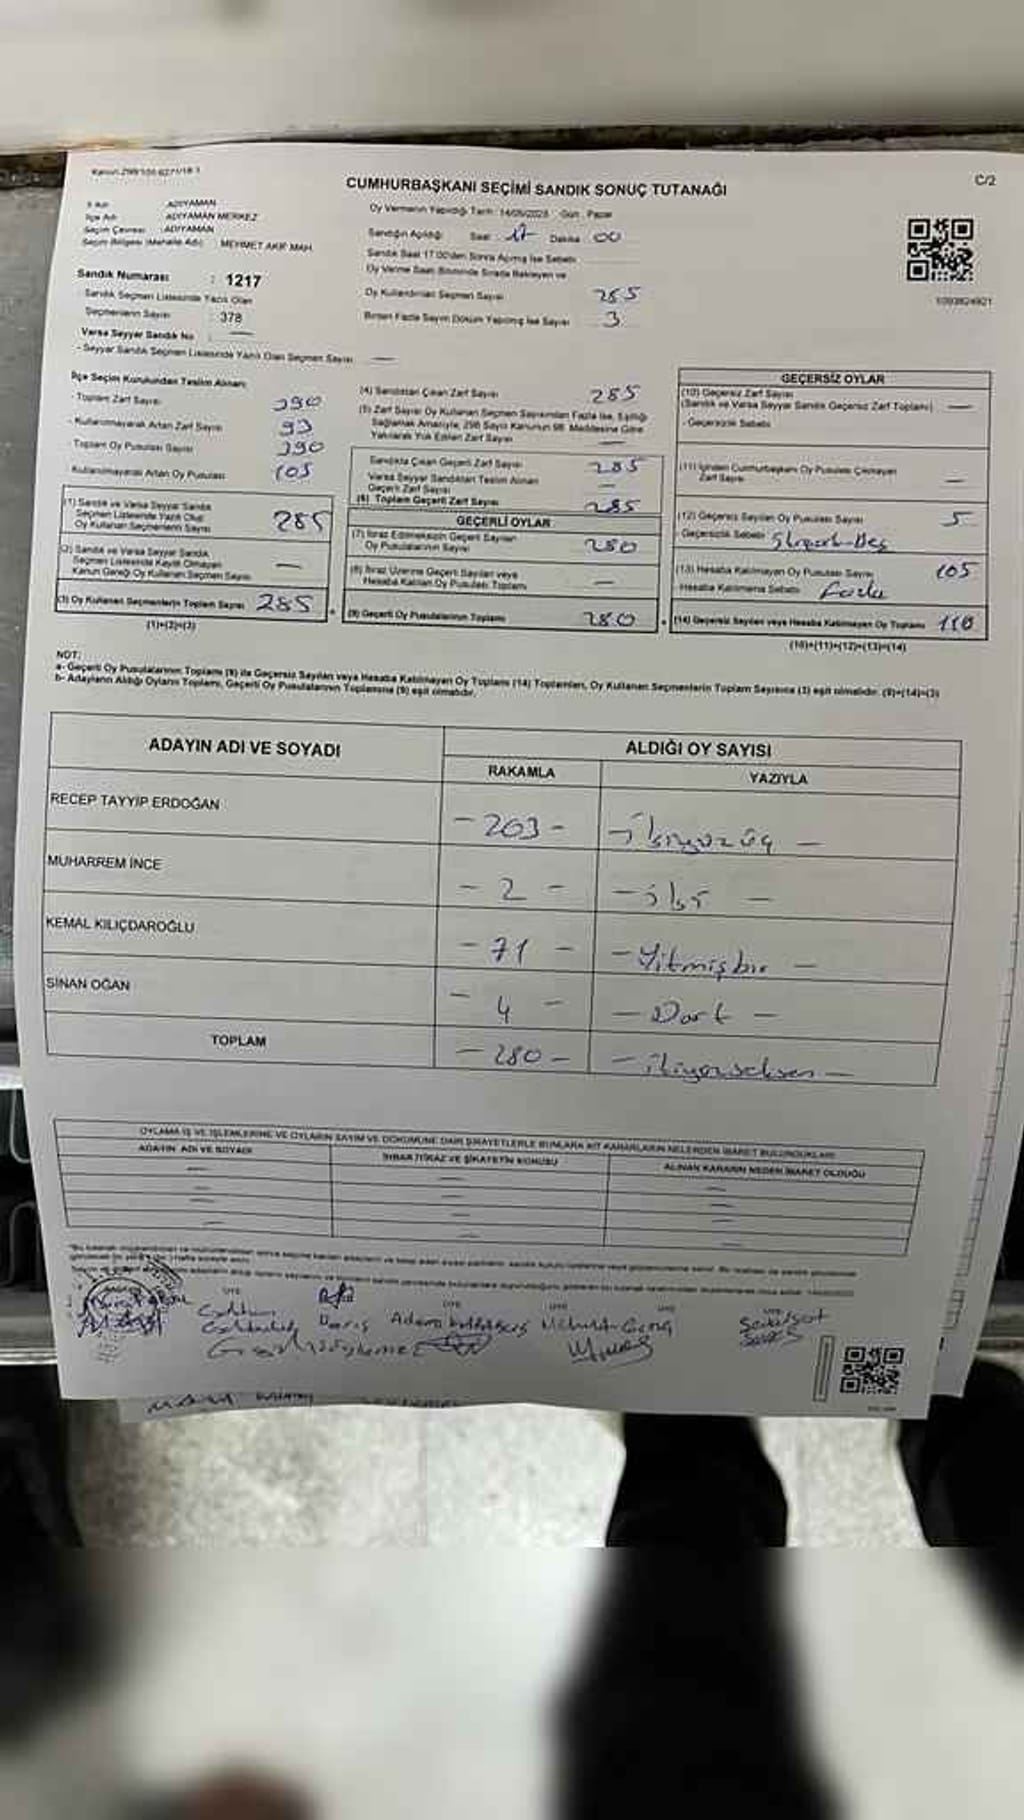 CUMHURBAŞKANI SEÇİMİ SANDIK SONUÇ TUTANAĞI
C/2
İl Adı ADIYAMAN
İlçe Adı ADIYAMAN MERKEZ
Seçim Çevresi ADIYAMAN
Seçim Bölgesi (Mahalle Adı) : MEHMET AKİF MAH.
Sandık Numarası : 1217
Sandık Seçmen Listesinde Yazılı Olan
Seçmenlerin Sayısı : 378
Varsa Seyyar Sandık No : —
- Seyyar Sandık Seçmen Listesinde Yazılı Olan Seçmen Sayısı —
Oy Vermenin Yapıldığı Tarih : 14/05/2023 Gün : Pazar
Sandığın Açıldığı Saat 17 Dakika 00
Sandık Saat 17:00'den Sonra Açılmış İse Sebebi
Oy Verme Saati Bitiminde Sırada Bekleyen ve
Oy Kullandırılan Seçmen Sayısı 285
Birden Fazla Sayım Döküm Yapılmış İse Sayısı 3
1093824921
İlçe Seçim Kurulundan Teslim Alınan:
- Toplam Zarf Sayısı 390
- Kullanılmayarak Artan Zarf Sayısı 93
- Toplam Oy Pusulası Sayısı 390
Kullanılmayarak Artan Oy Pusulası 105
(1) Sandık ve Varsa Seyyar Sandık
Seçmen Listesinde Yazılı Olup
Oy Kullanan Seçmenlerin Sayısı 285
(2) Sandık ve Varsa Seyyar Sandık
Seçmen Listesinde Kayıtlı Olmayan
Kanun Gereği Oy Kullanan Seçmen Sayısı —
(3) Oy Kullanan Seçmenlerin Toplam Sayısı 285
(1)+(2)=(3)
(4) Sandıktan Çıkan Zarf Sayısı 285
(5) Zarf Sayısı Oy Kullanan Seçmen Sayısından Fazla İse, Eşitliği
Sağlamak Amacıyla, 298 Sayılı Kanunun 98. Maddesine Göre
Yakılarak Yok Edilen Zarf Sayısı —
Sandıkta Çıkan Geçerli Zarf Sayısı 285
Varsa Seyyar Sandıktan Teslim Alınan
Geçerli Zarf Sayısı —
(6) Toplam Geçerli Zarf Sayısı 285
GEÇERLİ OYLAR
(7) İtiraz Edilmeksizin Geçerli Sayılan
Oy Pusulalarının Sayısı 280
(8) İtiraz Üzerine Geçerli Sayılan veya
Hesaba Katılan Oy Pusulaları Toplamı —
(9) Geçerli Oy Pusulalarının Toplamı 280
GEÇERSİZ OYLAR
(10) Geçersiz Zarf Sayısı
(Sandık ve Varsa Seyyar Sandık Geçersiz Zarf Toplamı) —
- Geçersizlik Sebebi
(11) İçinden Cumhurbaşkanı Oy Pusulası Çıkmayan
Zarf Sayısı —
(12) Geçersiz Sayılan Oy Pusulası Sayısı 5
- Geçersizlik Sebebi
(13) Hesaba Katılmayan Oy Pusulası Sayısı 105
- Hesaba Katılmama Sebebi Fazla
(14) Geçersiz Sayılan veya Hesaba Katılmayan Oy Toplamı 110
(10)+(11)+(12)+(13)=(14)
NOT:
a- Geçerli Oy Pusulalarının Toplamı (9) ile Geçersiz Sayılan veya Hesaba Katılmayan Oy Toplamı (14) Toplamları, Oy Kullanan Seçmenlerin Toplam Sayısına (3) eşit olmalıdır. (9)+(14)=(3)
b- Adayların Aldığı Oyların Toplamı, Geçerli Oy Pusulalarının Toplamına (9) eşit olmalıdır.
ADAYIN ADI VE SOYADI ALDIĞI OY SAYISI
RAKAMLA YAZIYLA
RECEP TAYYİP ERDOĞAN - 203 - - ikiyüzüç -
MUHARREM İNCE - 2 - - iki -
KEMAL KILIÇDAROĞLU - 71 - - Yitmişbir -
SİNAN OĞAN - 4 - - Dört -
TOPLAM - 280 - - ikiyüzseksen -
OYLAMA İŞ VE İŞLEMLERİNE VE OYLARIN SAYIM VE DÖKÜMÜNE DAİR ŞİKAYETLERLE BUNLARA AİT KARARLARIN NELERDEN İBARET BULUNDUKLARI
ADAYIN ADI VE SOYADI İHBAR İTİRAZ VE ŞİKAYETİN KONUSU ALINAN KARARIN NEDEN İBARET OLDUĞU
ÜYE ÜYE ÜYE ÜYE ÜYE
Barış